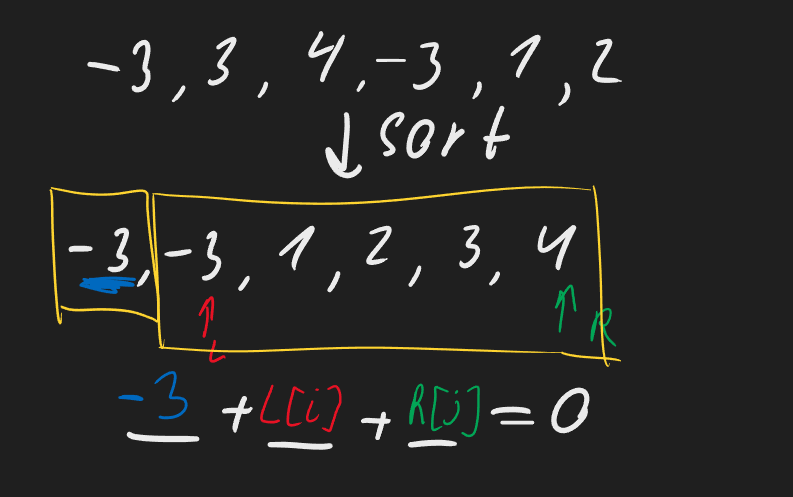 -3, 3, 4, -3, 1, 2
sort
-3, -3, 1, 2, 3, 4
L
R
-3 + L[i] + R[j] = 0